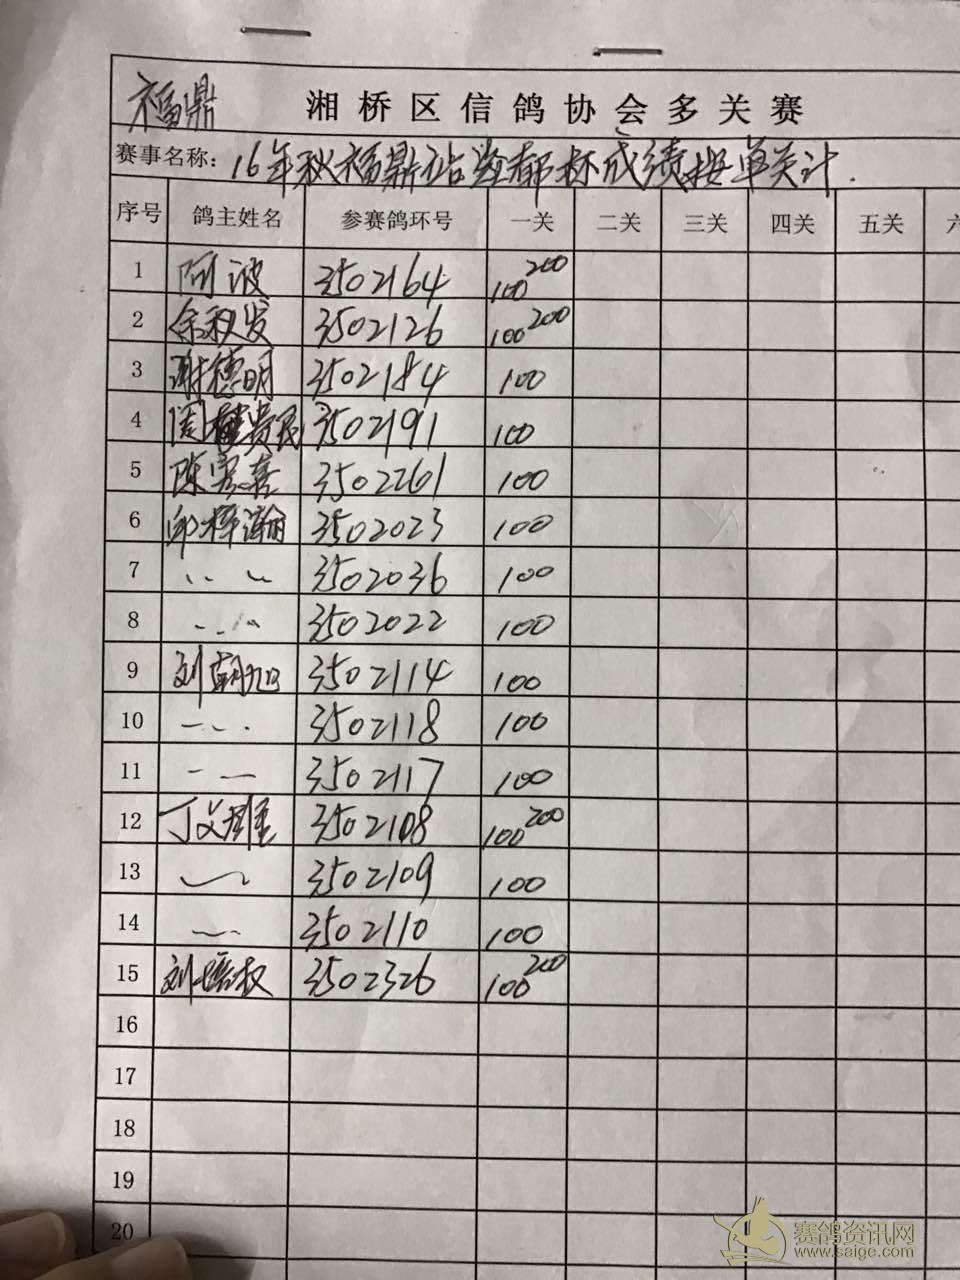 福鼎 湘桥区信鸽协会多关赛
赛事名称: 16年秋福鼎站 都杯成绩按单关计.
序号 鸽主姓名 参赛鸽环号 一关 二关 三关 四关 五关 六
1 阿波 3502164 100 200
2 余秋发 3502126 100 200
3 谢德明 3502184 100
4 3502191 100
5 陈 喜 3502261 100
6 邱梓瀚 3502023 100
7 〃 〃 3502036 100
8 3502022 100
9 刘朝旭 3502114 100
10 3502118 100
11 3502117 100
12 丁义雄 3502108 100 200
13 3502109 100
14 3502110 100
15 刘培权 3502326 100 200
16
17
18
19
20
赛鸽资讯网
www.saige.com